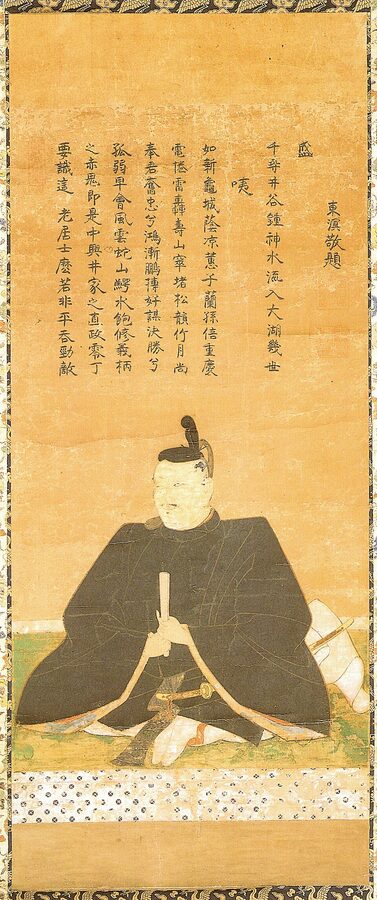 要識這 老居士麼若非平呑勁敵
之赤鬼即是中興井家之直政零丁
孤弱早會風雲蛇山鰐水飽修義柄
奉君奮忠兮鴻漸鵬摶好謀決勝兮
電捲雷轟壽山窣堵松韻竹月尚
如新龜城蔭凉蕙子蘭孫倍重慶
咦
千尋井谷鍾神水流入大湖幾世
盛
東溟敬題